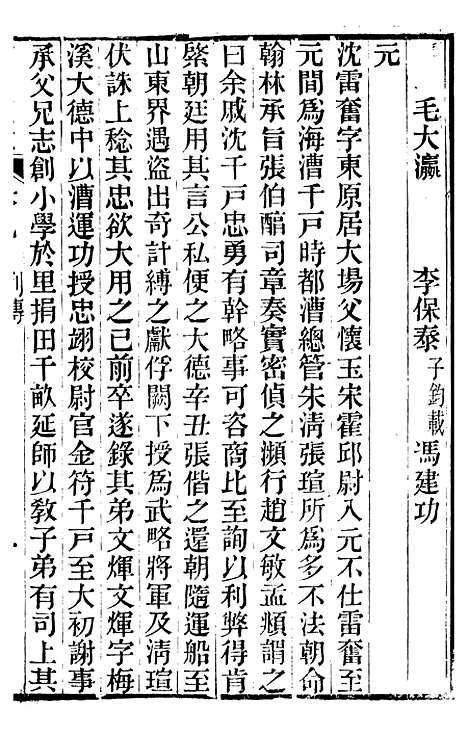 毛大瀛　李保泰子鈞載　馮建功
元
沈雷奮字東原居大場父懷玉宋霍邱尉入元不仕雷奮至
元間爲海漕千戸時都漕總管朱淸張瑄所爲多不法朝命
翰林承旨張伯酯司章奏實密偵之瀕行趙文敏孟頫謂之
曰余戚沈千戸忠勇有幹略事可咨商比至詢以利弊得肯
綮朝廷用其言公私便之大德辛丑張偕之還朝隨運船至
山東界遇盜出奇計縛之獻俘闕下授爲武略將軍及淸瑄
伏誅上稔其忠欲大用之已前卒遂錄其弟文煇文煇字梅
溪大德中以漕運功授忠翊校尉官金符千戸至大初謝事
承父兄志創小學於里捐田千畝延師以敎子弟有司上其
列傳